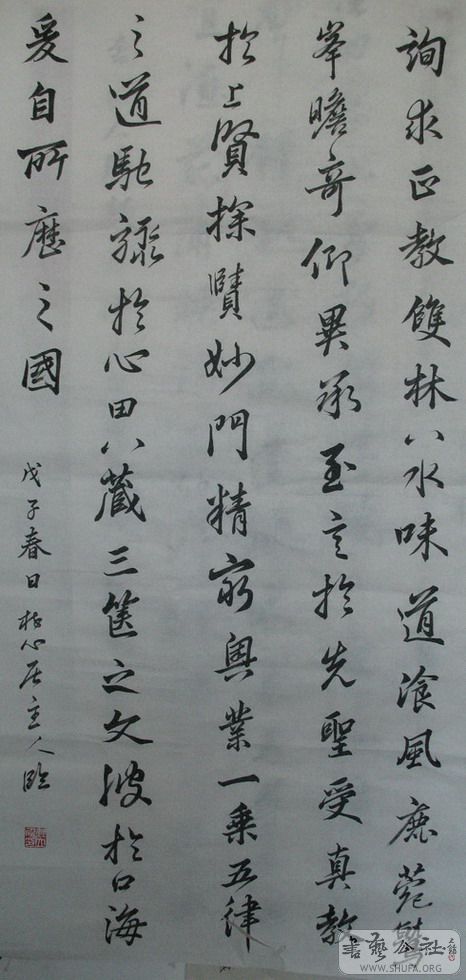 詢求正教雙林八水味道飡風鹿菀鷲
峯瞻奇仰異承至言於先聖受真教
於上賢探賾妙門精窮奧業一乘五律
之道馳驟於心田八藏三篋之文波於口海
爰自所歷之國
戊子春日 心居主人臨
書藝公社
WWW.SHUFA.ORG